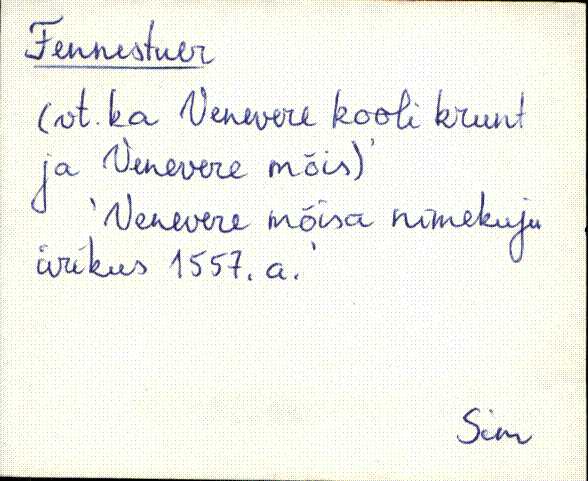 Fennestuer
(vt. ka Venevere kooli krunt
ja Venevere mõis)'
'Venevere mõisa nimekuju
ürikus 1557. a.'
Sim